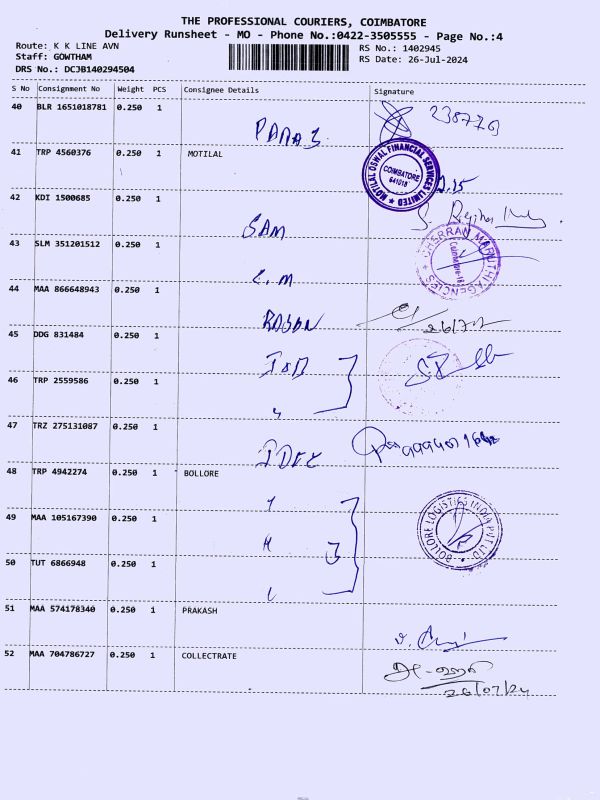 THE PROFESSIONAL COURIERS, COIMBATORE
Delivery Runsheet - MO - Phone No.:0422-3505555 - Page No.:4
Route: K K LINE AVN
RS No.: 1402945
Staff: GOWTHAM
RS Date: 26-Jul-2024
DRS No.: DCJB140294504
S No Consignment No Weight PCS Consignee Details Signature
40 BLR 1651018781 0.250 1
41 TRP 4560376 0.250 1 MOTILAL
MOTILAL OSWAL FINANCIAL SERVICES LIMITED
COIMBATORE
641018
42 KDI 1500685 0.250 1
SAM
43 SLM 351201512 0.250 1
MARUTHI AGENCIES
44 MAA 866648943 0.250 1
45 DDG 831484 0.250 1
46 TRP 2559586 0.250 1
47 TRZ 275131087 0.250 1
48 TRP 4942274 0.250 1 BOLLORE
BOLLORE LOGISTICS INDIA PVT LTD
49 MAA 105167390 0.250 1
50 TUT 6866948 0.250 1
51 MAA 574178340 0.250 1 PRAKASH
52 MAA 704786727 0.250 1 COLLECTRATE
26/07/24